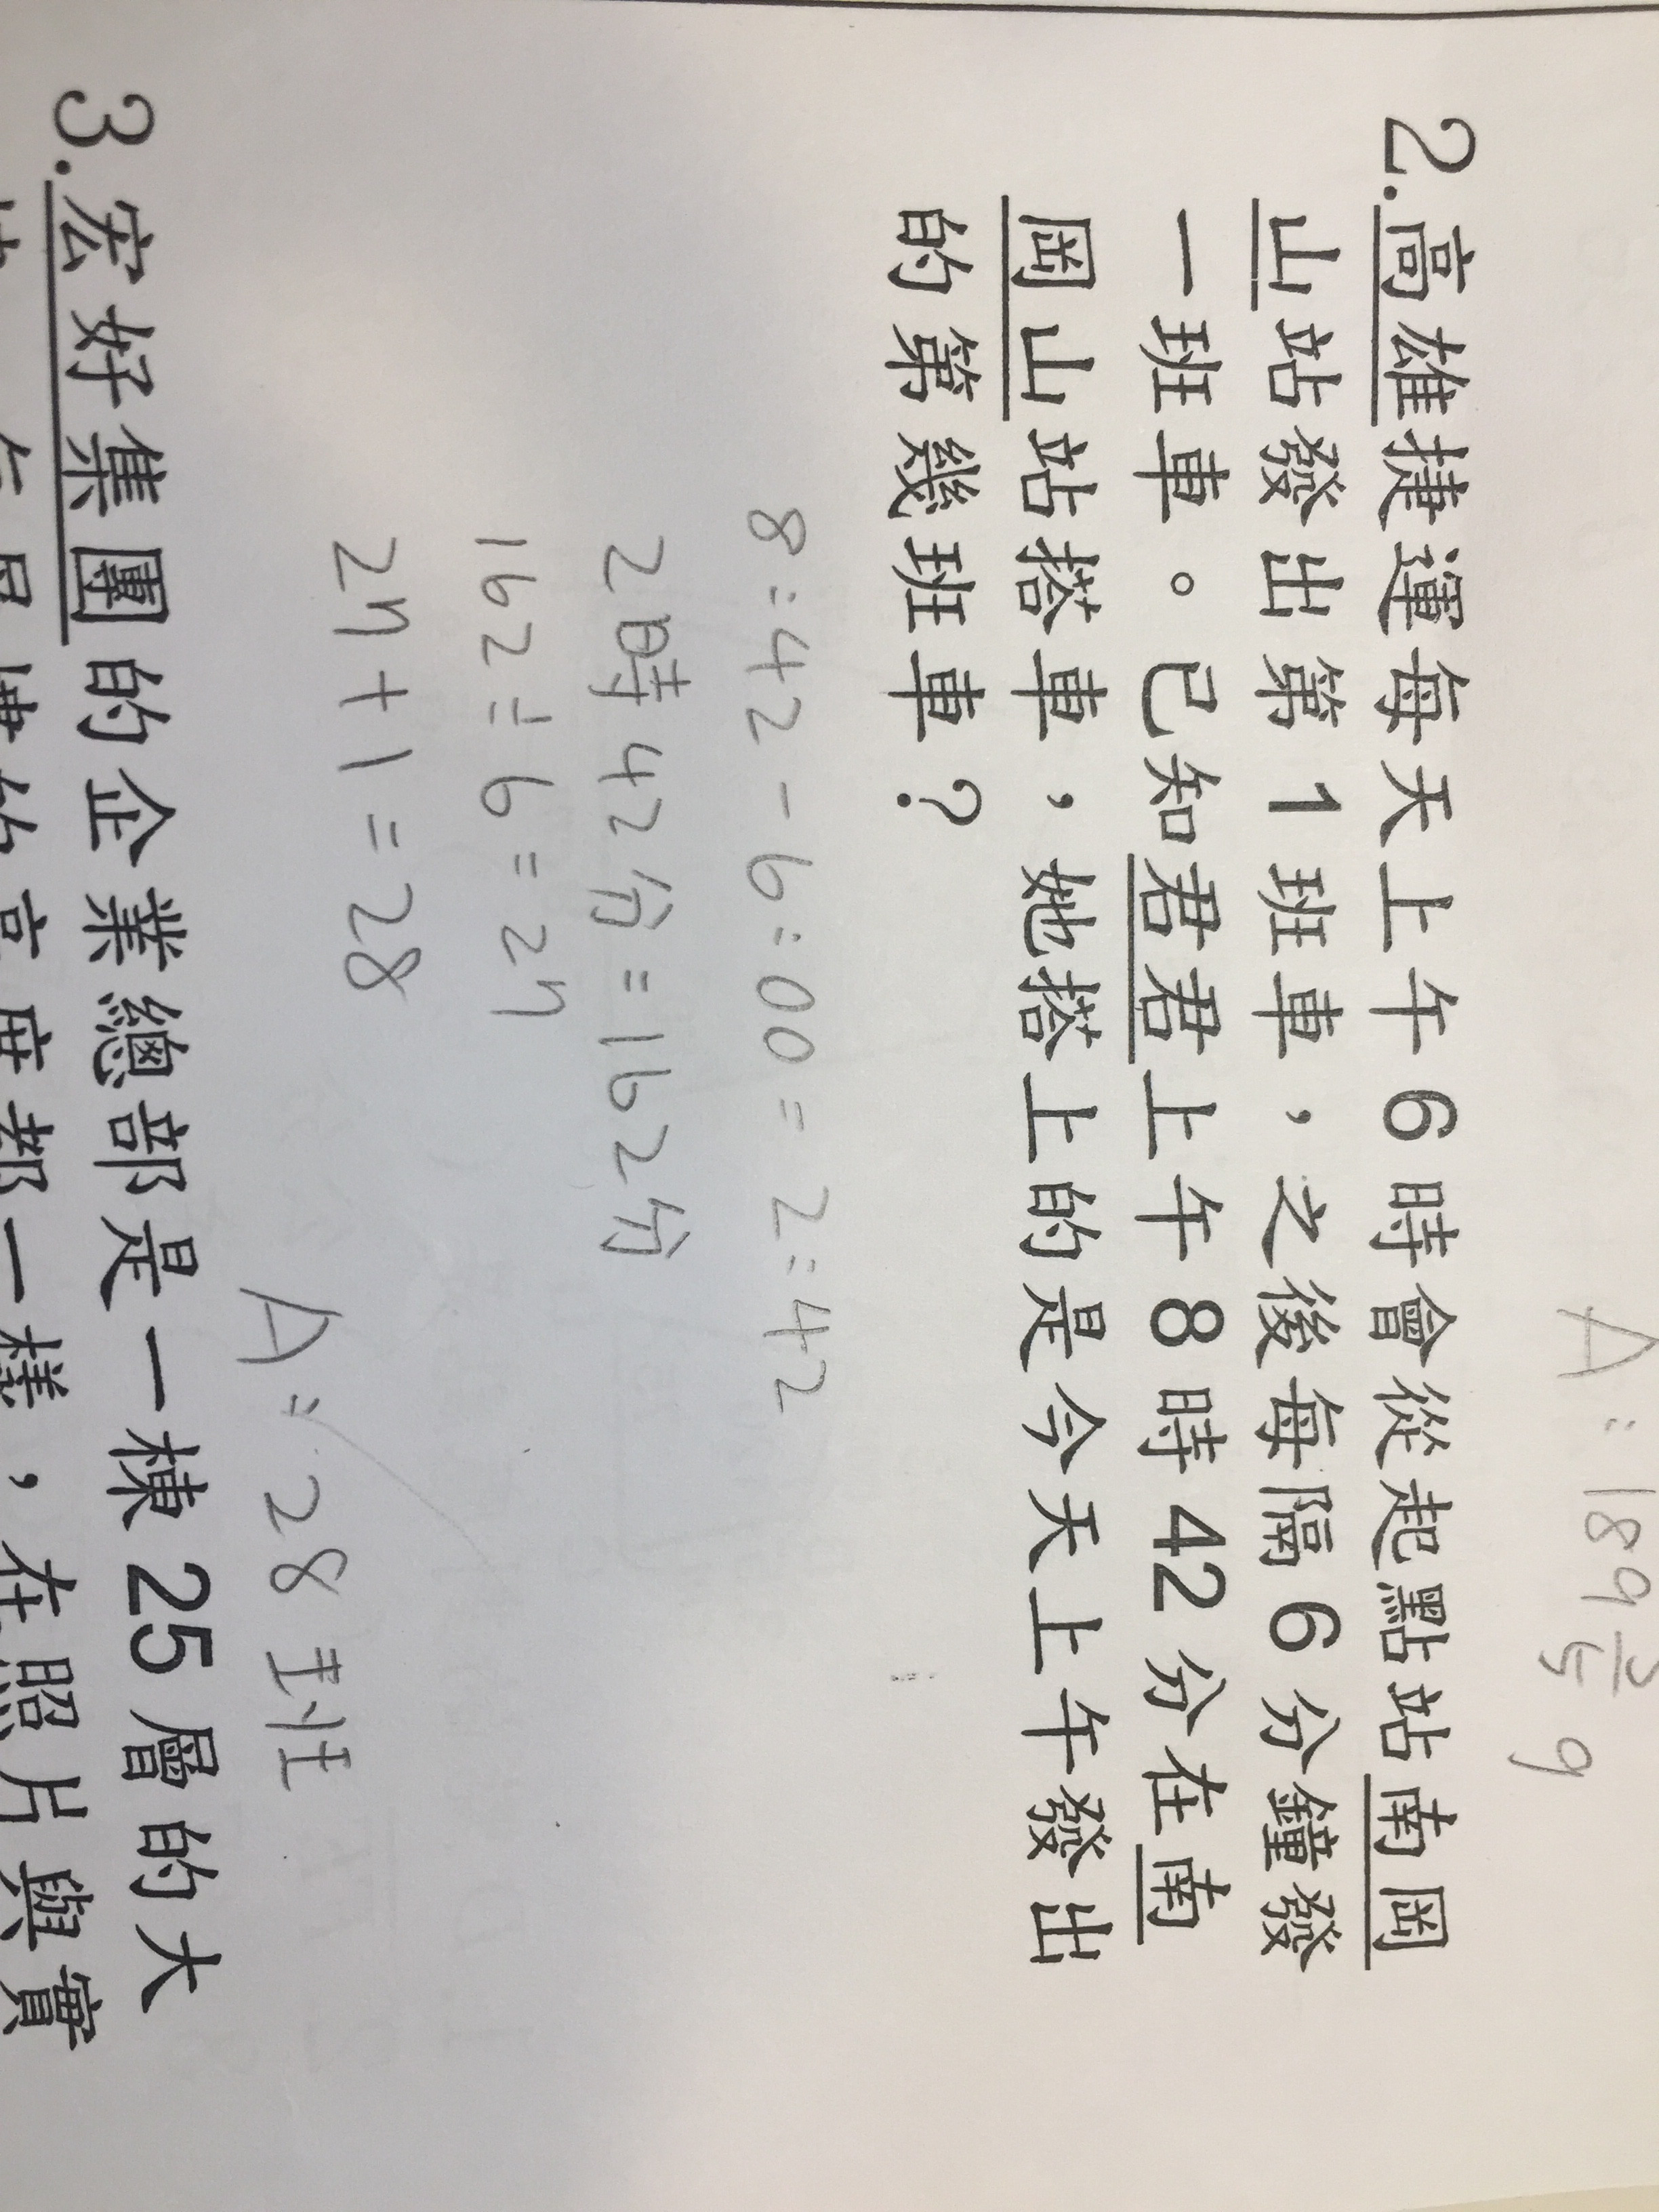 A：189 3/5 g
2.高雄捷運每天上午6時會從起點站南岡
山站發出第1班車，之後每隔6分鐘發
一班車。已知君君上午8時42分在南
岡山站搭車，她搭上的是今天上午發出
的第幾班車？
8:42-6:00=2:42
2時42分=162分
162÷6=27
27+1=28
A：28班
3.宏好集團的企業總部是一棟25層的大
度都一樣，在照片與實